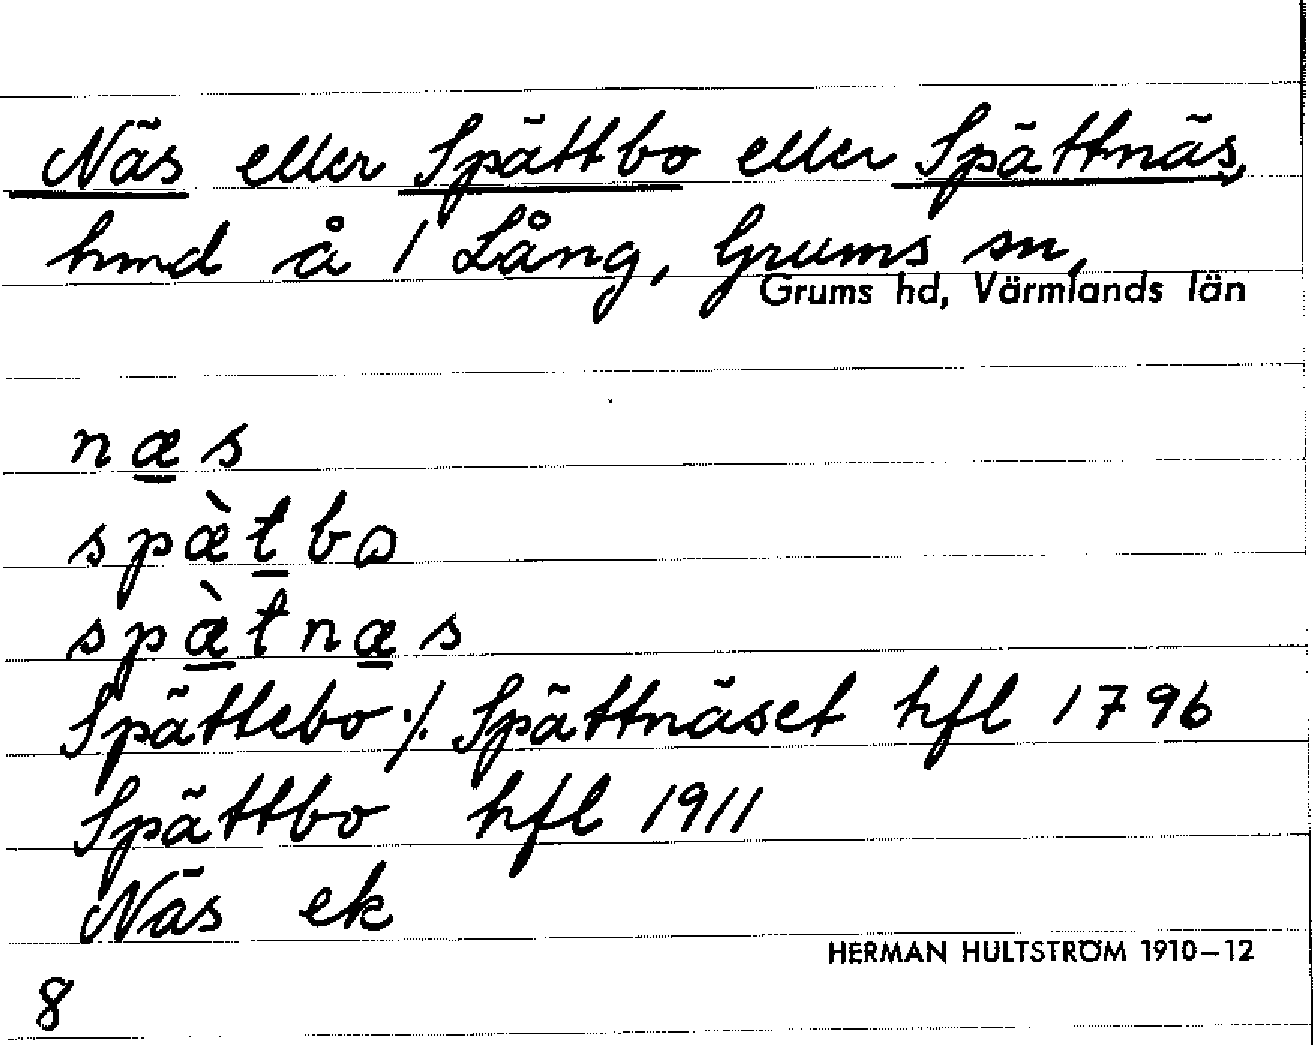 Näs eller Spättbo eller Spättnäs,
hmd å 1 Lång, Grums sn,
Grums hd, Värmlands län
næ̲s
spæ̀t̲bɷ
spæ̲̀tnæ̲s
Spättebo ./. Spättnäset hfl 1796
Spättbo hfl 1911
Näs ek
HERMAN HULTSTRÖM 1910–12
8